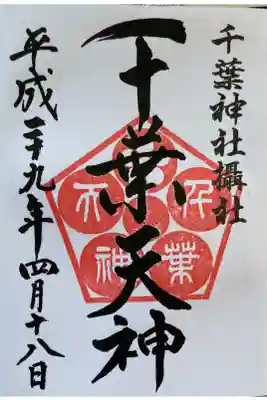 千葉神社攝社
千葉天神
千葉天神
平成二十九年四月十八日